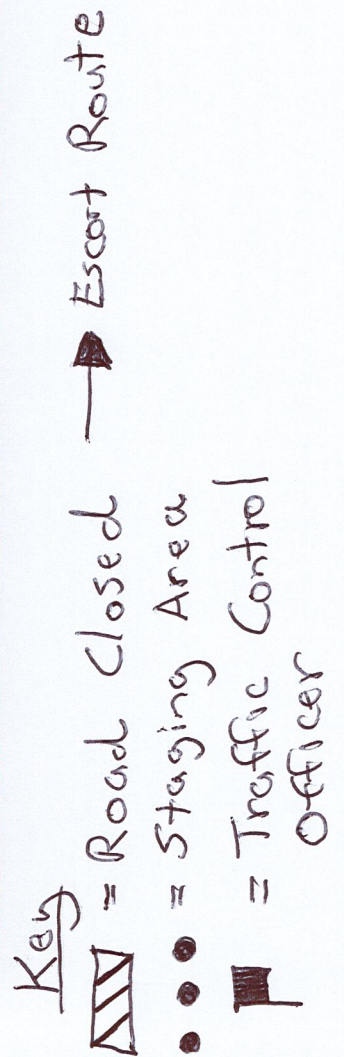 Key
= Road Closed → Escort Route
= Staging Area
= Traffic Control
Officer